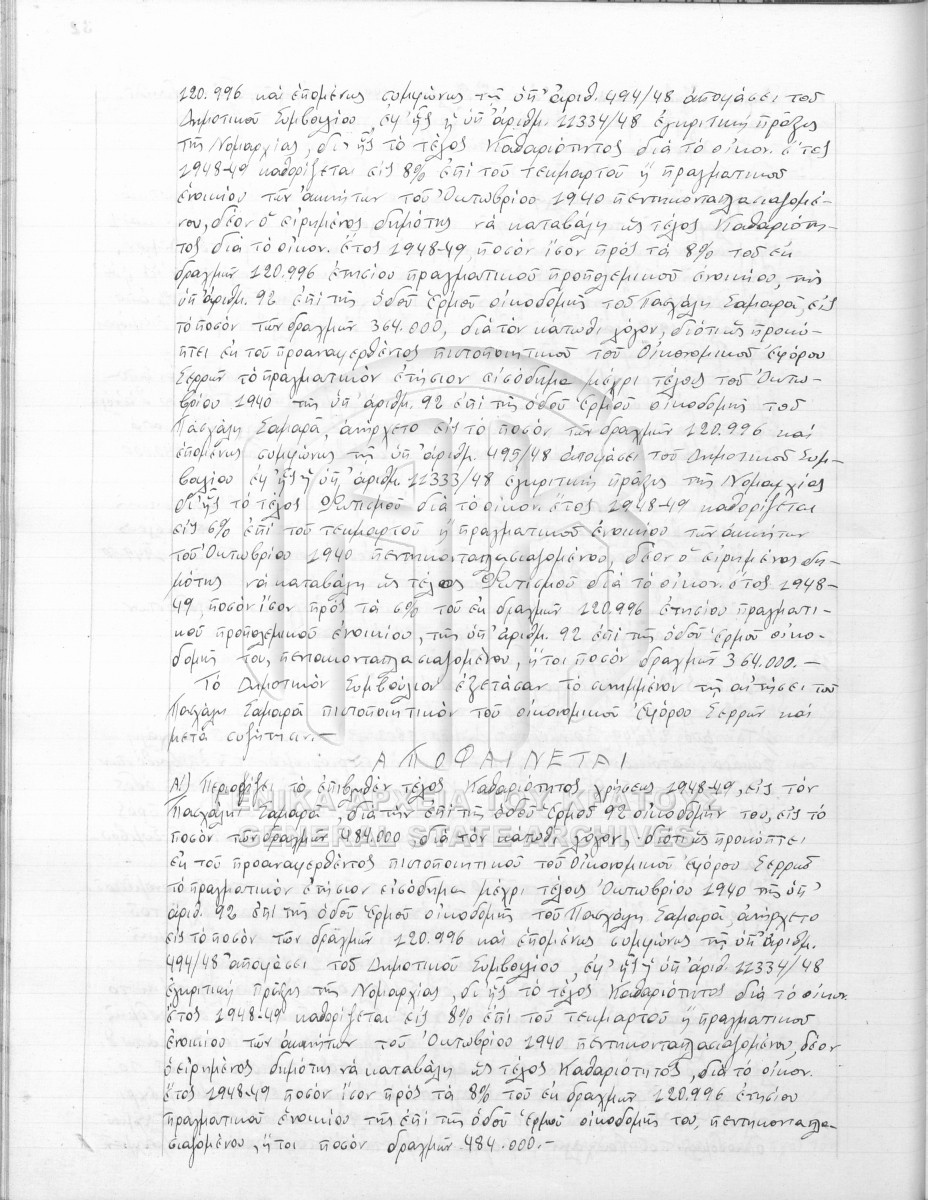 120.996 καὶ ἑπομένως συμφώνως τῇ ὑπ' ἀριθ. 494/48 ἀποφάσει τοῦ
Δημοτικοῦ Συμβουλίου, ἐφ' ἧς ἡ ὑπ' ἀριθμ. 11334/48 ἐγκριτικὴ πρᾶξις
τῆς Νομαρχίας, δι' ἧς τὸ τέλος Καθαριότητος διὰ τὸ οἰκον. ἔτος
1948-49 καθορίζεται εἰς 8% ἐπὶ τοῦ τεκμαρτοῦ ἢ πραγματικοῦ
ἐνοικίου τῶν ἀκινήτων τοῦ Ὀκτωβρίου 1940 πεντηκονταπλασιαζομέ-
νου, δέον ὁ εἰρημένος δημότης νὰ καταβάλῃ ὡς τέλος Καθαριότη-
τος διὰ τὸ οἰκον. ἔτος 1948-49, ποσὸν ἴσον πρὸς τὰ 8% τοῦ ἐκ
δραχμῶν 120.996 ἐτησίου πραγματικοῦ προπολεμικοῦ ἐνοικίου, τῆς
ὑπ' ἀριθμ. 92 ἐπὶ τῆς ὁδοῦ Ἑρμοῦ οἰκοδομῆς τοῦ Πασχάλη Σαμαρᾶ, εἰς
τὸ ποσὸν τῶν δραχμῶν 364.000, διὰ τὸν κάτωθι λόγον, διότι ὡς προκύ-
πτει ἐκ τοῦ προαναφερθέντος πιστοποιητικοῦ τοῦ Οἰκονομικοῦ Ἐφόρου
Σερρῶν τὸ πραγματικὸν ἐτήσιον εἰσόδημα μέχρι τέλος τοῦ Ὀκτω-
βρίου 1940 τῆς ὑπ' ἀριθμ. 92 ἐπὶ τῆς ὁδοῦ Ἑρμοῦ οἰκοδομῆς τοῦ
Πασχάλη Σαμαρᾶ, ἀνήρχετο εἰς τὸ ποσὸν τῶν δραχμῶν 120.996 καὶ
ἑπομένως συμφώνως τῇ ὑπ' ἀριθμ. 495/48 ἀποφάσει τοῦ Δημοτικοῦ Συμ-
βουλίου ἐφ' ἧς ἡ ὑπ' ἀριθμ. 11333/48 ἐγκριτικὴ πρᾶξις τῆς Νομαρχίας
δι' ἧς τὸ τέλος Φωτισμοῦ διὰ τὸ οἰκον. ἔτος 1948-49 καθορίζεται
εἰς 6% ἐπὶ τοῦ τεκμαρτοῦ ἢ πραγματικοῦ ἐνοικίου τῶν ἀκινήτων
τοῦ Ὀκτωβρίου 1940 πεντηκονταπλασιαζομένου, δέον ὁ εἰρημένος δη-
μότης νὰ καταβάλῃ ὡς τέλος Φωτισμοῦ διὰ τὸ οἰκον. ἔτος 1948-
49, ποσὸν ἴσον πρὸς τὰ 6% τοῦ ἐκ δραχμῶν 120.996 ἐτησίου πραγματι-
κοῦ προπολεμικοῦ ἐνοικίου, τῆς ὑπ' ἀριθμ. 92 ἐπὶ τῆς ὁδοῦ Ἑρμοῦ οἰκο-
δομῆς του, πεντηκονταπλασιαζομένου, ἤτοι ποσὸν δραχμῶν 364.000.—
Τὸ Δημοτικὸν Συμβούλιον ἐξετάσαν τὸ συνημμένον τῇ αἰτήσει τοῦ
Πασχάλη Σαμαρᾶ πιστοποιητικὸν τοῦ οἰκονομικοῦ Ἐφόρου Σερρῶν καὶ
μετὰ συζήτησιν.—
ΑΠΟΦΑΙΝΕΤΑΙ
Α!) Περιορίζει τὸ ἐπιβληθὲν τέλος Καθαριότητος χρήσεως 1948-49, εἰς τὸν
Πασχάλην Σαμαρᾶ, διὰ τὴν ἐπὶ τῆς ὁδοῦ Ἑρμοῦ 92 οἰκοδομήν του, εἰς τὸ
ποσὸν τῶν δραχμῶν 484.000 διὰ τὸν κάτωθι λόγον, διότι ὡς προκύπτει
ἐκ τοῦ προαναφερθέντος πιστοποιητικοῦ τοῦ Οἰκονομικοῦ Ἐφόρου Σερρῶν
τὸ πραγματικὸν ἐτήσιον εἰσόδημα μέχρι τέλους Ὀκτωβρίου 1940 τῆς ὑπ'
ἀριθ. 92 ἐπὶ τῆς ὁδοῦ Ἑρμοῦ οἰκοδομῆς τοῦ Πασχάλη Σαμαρᾶ, ἀνήρχετο
εἰς τὸ ποσὸν τῶν δραχμῶν 120.996 καὶ ἑπομένως συμφώνως τῇ ὑπ' ἀριθμ.
494/48 ἀποφάσει τοῦ Δημοτικοῦ Συμβουλίου, ἐφ' ἧς ἡ ὑπ' ἀριθ. 11334/48
ἐγκριτικὴ Πρᾶξις τῆς Νομαρχίας, δι' ἧς τὸ τέλος Καθαριότητος διὰ τὸ οἰκον.
ἔτος 1948-49 καθορίζεται εἰς 8% ἐπὶ τοῦ τεκμαρτοῦ ἢ πραγματικοῦ
ἐνοικίου τῶν ἀκινήτων τοῦ Ὀκτωβρίου 1940 πεντηκονταπλασιαζομένου, δέον
ὁ εἰρημένος δημότης νὰ καταβάλῃ ὡς τέλος Καθαριότητος, διὰ τὸ οἰκον.
ἔτος 1948-49 ποσὸν ἴσον πρὸς τὰ 8% τοῦ ἐκ δραχμῶν 120.996 ἐτησίου
πραγματικοῦ ἐνοικίου τῆς ἐπὶ τῆς ὁδοῦ Ἑρμοῦ οἰκοδομῆς του, πεντηκονταπλα-
σιαζομένου, ἤτοι ποσὸν δραχμῶν 484.000.—
ΓΕΝΙΚΑ ΑΡΧΕΙΑ ΤΟΥ ΚΡΑΤΟΥΣ
GENERAL STATE ARCHIVES